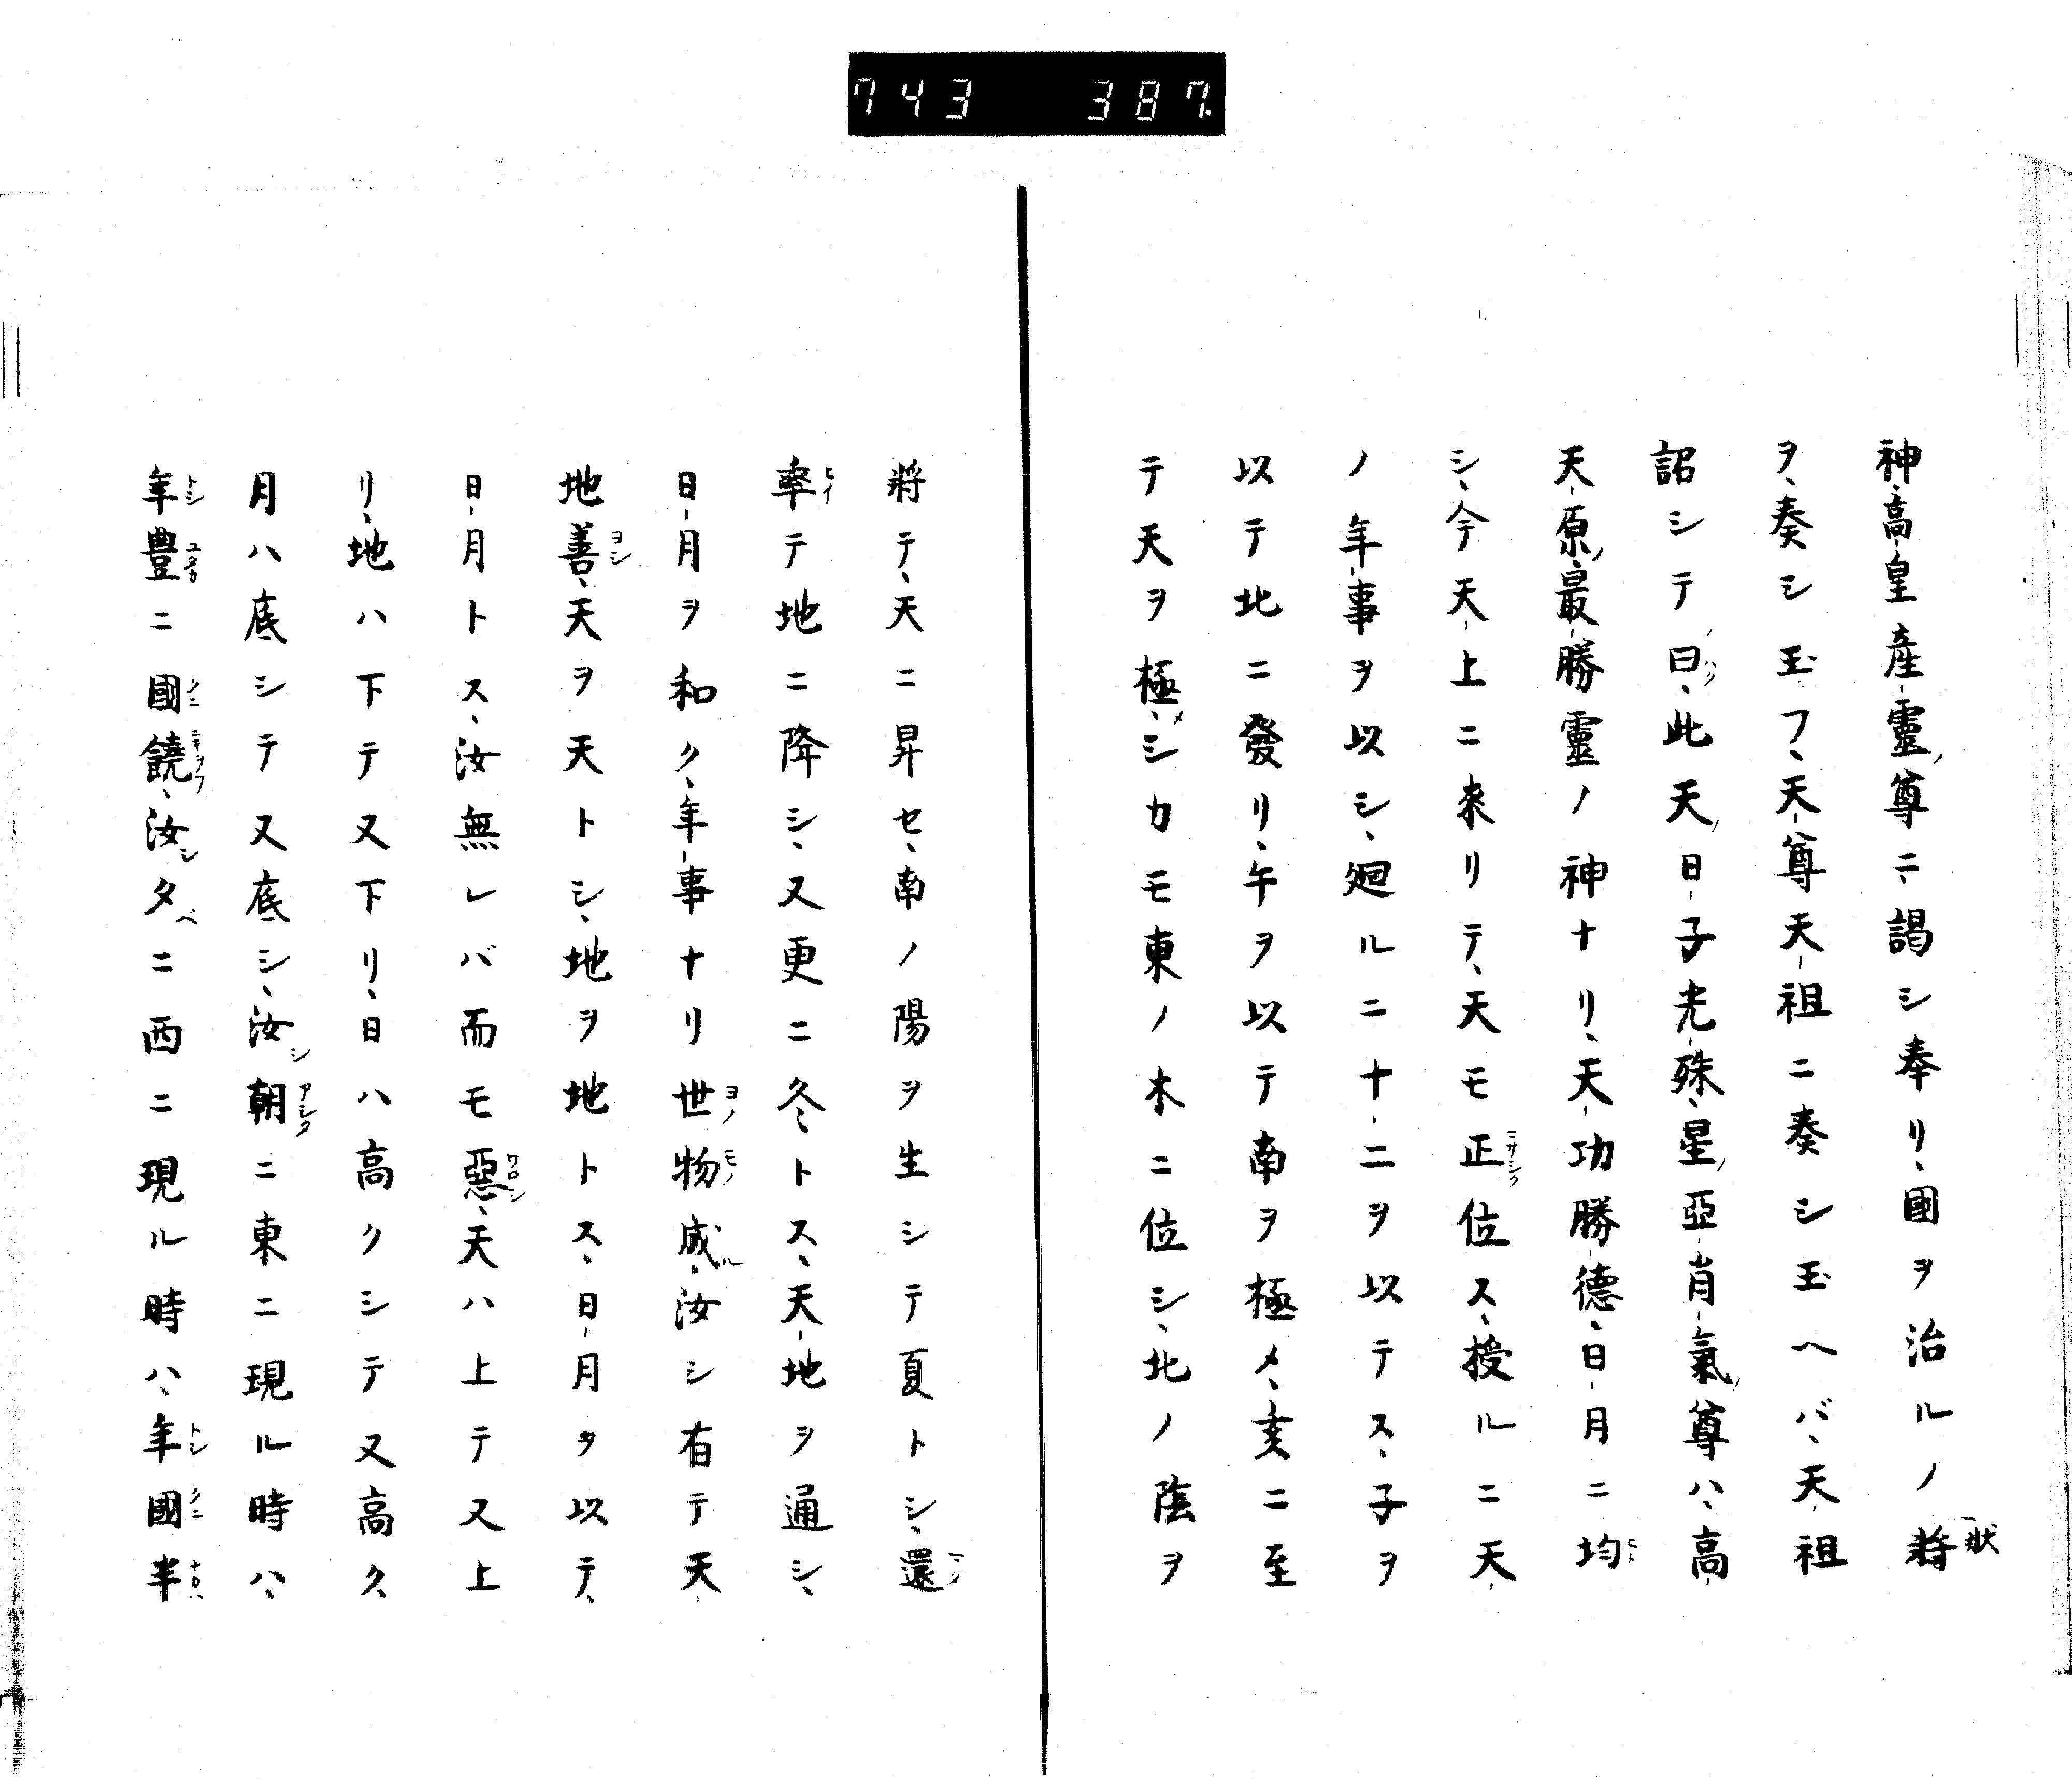 743 387
神、高皇産靈ノ尊ニ、謁シ奉リ、國ヲ治ルノ將狀
ヲ、奏シ玉フ、天尊天祖ニ奏シ玉ヘバ、天祖
詔シテ曰ハク、此天ノ日子光殊、星ノ亞肖氣ノ尊ハ、高
天原ノ、最勝靈ノ神ナリ、天功勝德、日月ニ均ヒト
シ、今天上ニ來リテ、天モ正位ス、授ルニ天
ノ年事ヲ以シ、廻ルニ十二ヲ以テス、子ヲ
以テ北ニ發リ、午ヲ以テ南ヲ極メ、亥ニ至
テ天ヲ極メ、シカモ東ノ木ニ位シ、北ノ陰ヲ
將テ、天ニ昇セ、南ノ陽ヲ生シテ夏トシ、還
率ヒイテ地ニ降シ、又更ニ冬トス、天地ヲ通シ、
日月ヲ和ク、年事ナリ世ヨノ物モノ成ル、汝シ有テ天
地善ヨシ、天ヲ天トシ、地ヲ地トス、日月ヲ以テ、
日月トス、汝無レバ而モ惡ワロシ、天ハ上テ又上
リ、地ハ下テ又下リ、日ハ高クシテ又高ク、
月ハ底シテ又底シ、汝シ朝アシタニ東ニ現ル時ハ、
年トシ豊ユタカニ國クニ饒ニキヲフ、汝シ夕ベニ西ニ現ル時ハ、年トシ國クニ半ナカハ